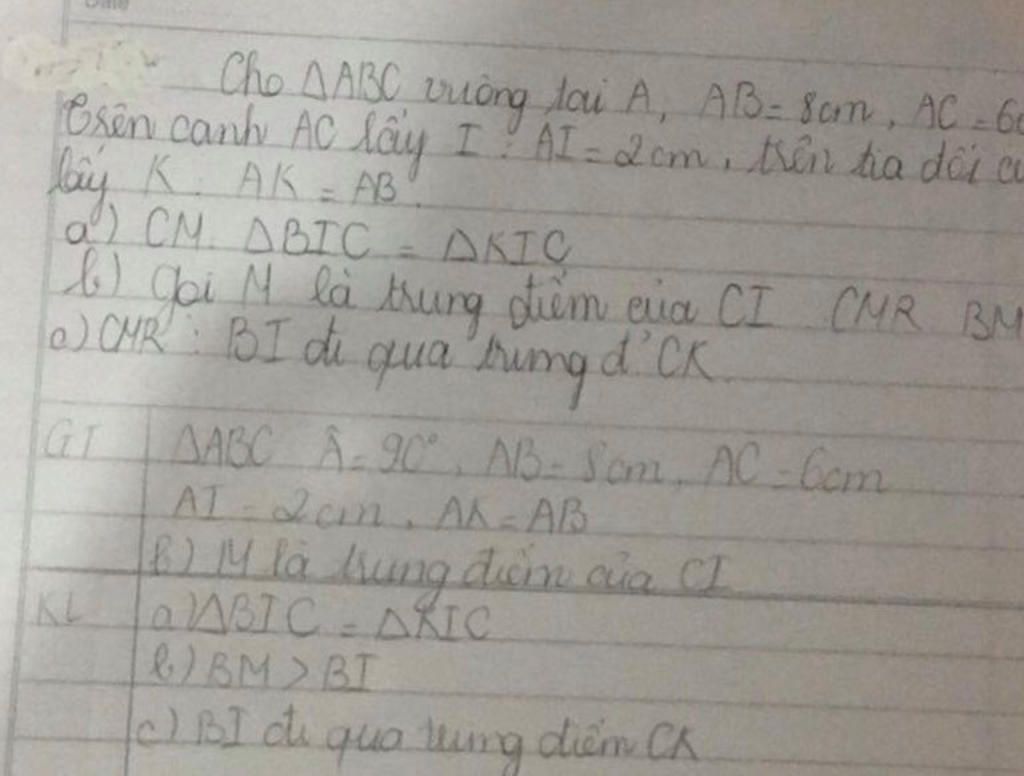 Cho ΔABC vuông tại A, AB = 8cm, AC = 6c
Trên cạnh AC lấy I : AI = 2cm, trên tia đối củ
lấy K : AK = AB.
a) CM ΔBIC = ΔKIC
b) Gọi M là trung điểm của CI CMR BM
c) CMR : BI đi qua trung đ' CK
GT ΔABC Â = 90°, AB = 8cm, AC = 6cm
AI = 2cm, AK = AB
b) M là trung điểm của CI
KL a) ΔBIC = ΔKIC
b) BM > BI
c) BI đi qua trung điểm CK